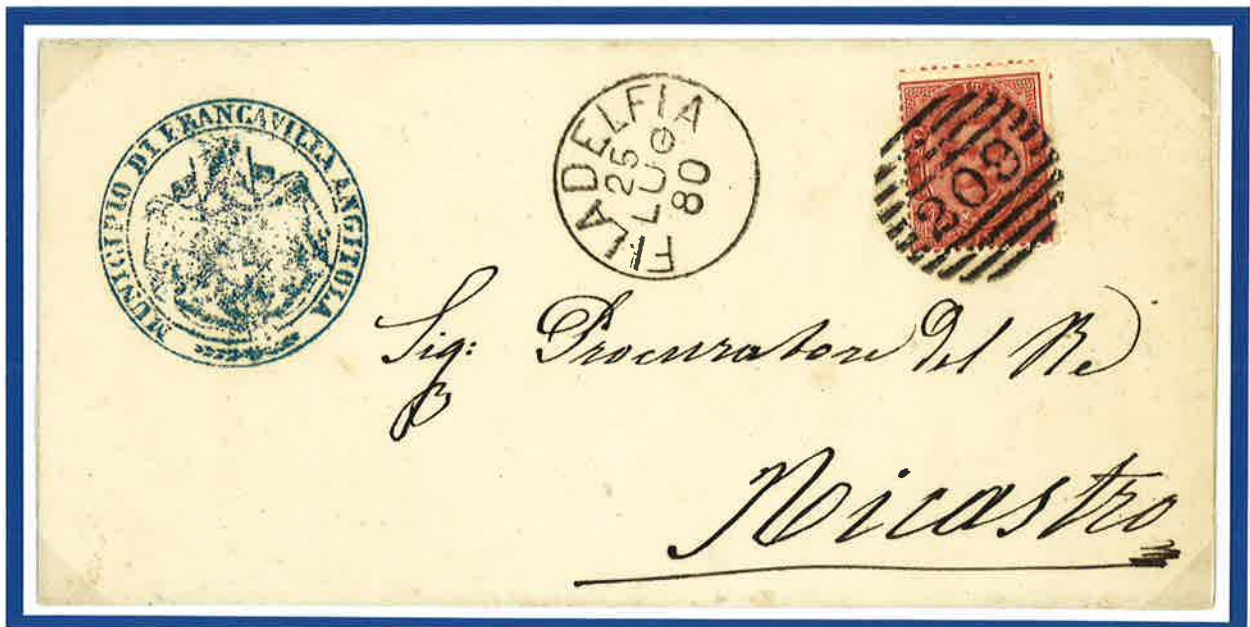 MUNICIPIO DI FRANCAVILLA ANGITOLA
FILADELFIA
25
LUG
80
209
Sig: Procuratore Del Re
Nicastro